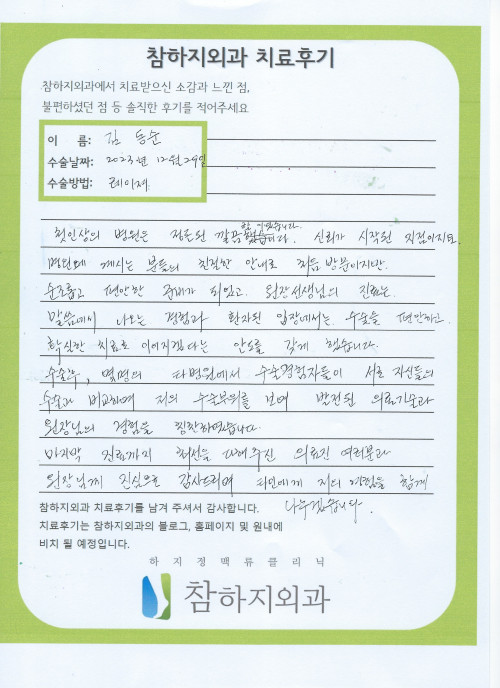 참하지외과 치료후기
참하지외과에서 치료받으신 소감과 느낀 점,
불편하셨던 점 등 솔직한 후기를 적어주세요
이 름: 김동순
수술날짜: 2023년 12월 29일
수술방법: 레이져
첫인상의 병원은 정돈된 깔끔함이었습니다. 신뢰가 시작된 지점이지요.
병원에 계시는 분들의 친절한 안내로 처음 방문이지만
순조롭고 편안한 준비가 되었고 원장선생님의 진료는
말씀에서 나오는 경험과 환자된 입장에서는 수술을 편안하고
확실한 치료로 이어지겠다는 안도를 갖게 했습니다.
수술후, 몇명의 타병원에서 수술경험자들이 서로 자신들의
수술과 비교하며 저의 수술부위를 보며 발전된 의료기술과
원장님의 경험을 칭찬하였습니다
마지막 진료까지 최선을 다해주신 의료진 여러분과
원장님께 진심으로 감사드리며 타인에게 저의 경험을 함께
나누겠습니다.
참하지외과 치료후기를 남겨 주셔서 감사합니다.
치료후기는 참하지외과의 블로그, 홈페이지 및 원내에
비치 될 예정입니다.
하지정맥류클리닉
참하지외과